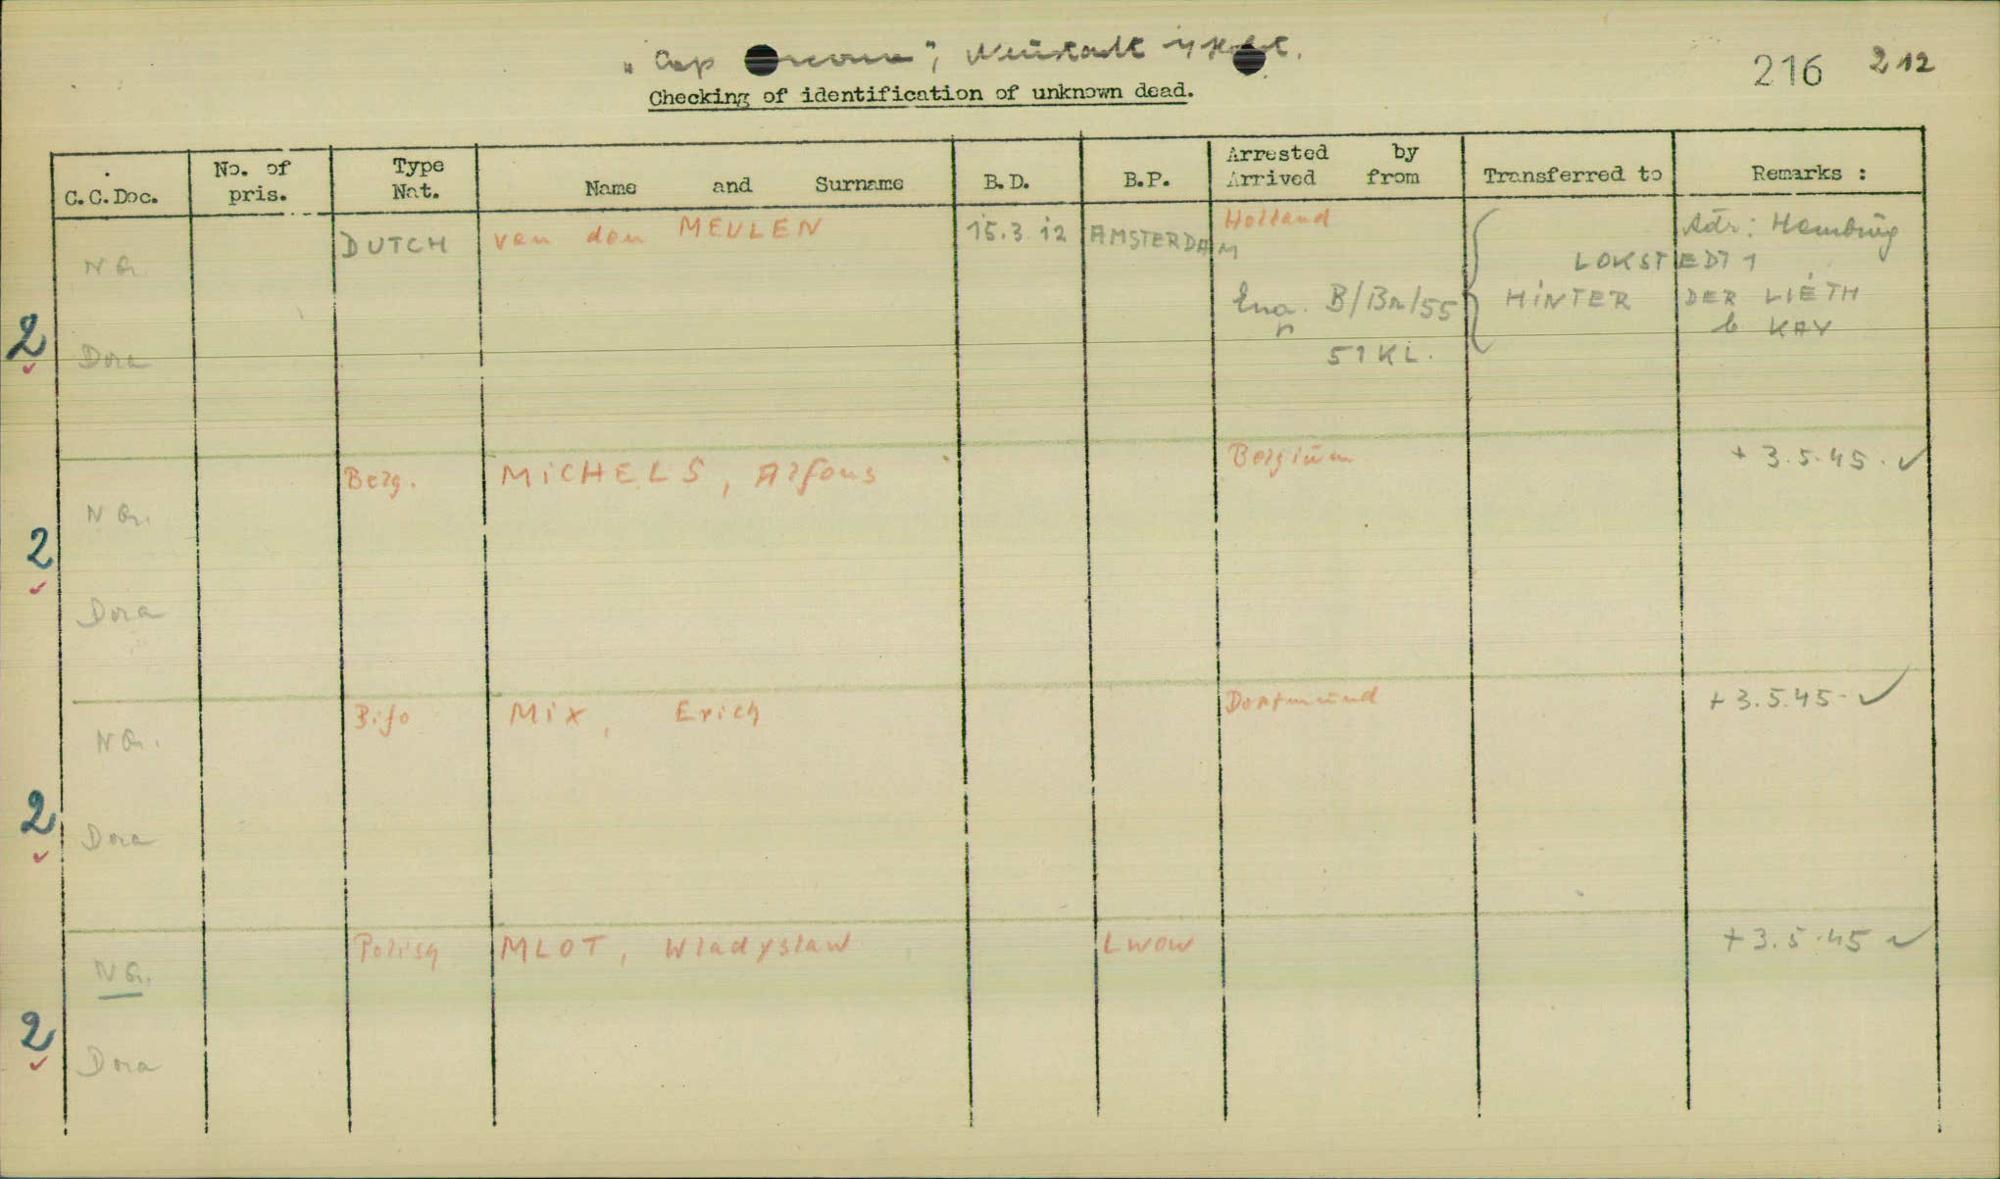 "Cap Arcona", Neustadt i/Holst.
216 212
Checking of identification of unknown dead.
C.C.Doc. No. of pris. Type Nat. Name and Surname B.D. B.P. Arrested by Arrived from Transferred to Remarks :
2 N Gr. DUTCH van den MEULEN 15.3.12 AMSTERDAM Holland Adr: Hamburg
LOKSTEDT 1
B/Bn/55 HINTER DER LIETH
b KAY
Dora 51 KL.
2 N Gr. Belg. MICHELS, Alfons Belgium + 3.5.45. ✓
Dora
2 N Gr. Bifo MIX, Erich Dortmund + 3.5.45 - ✓
Dora
2 N Gr. Polish MLOT, Wladyslaw LWOW + 3.5.45 ✓
Dora